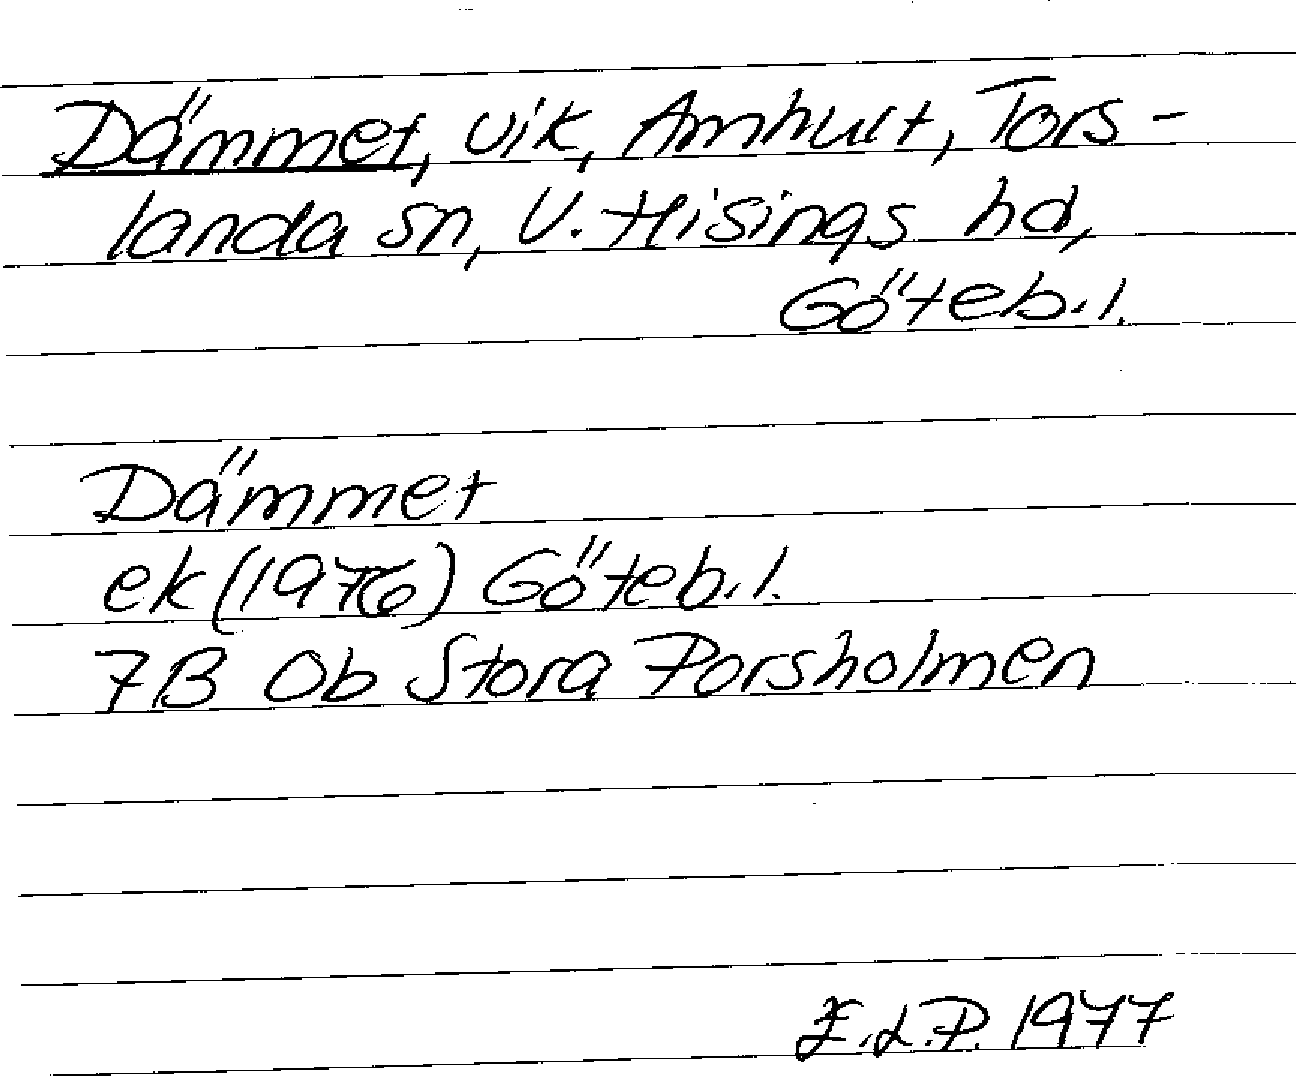 Dämmet, vik, Amhult, Tors-
landa sn, V. Hisings hd,
Göteb.l.
Dämmet
ek (1976) Göteb.l.
7B 0b Stora Porsholmen
E.L.P. 1977